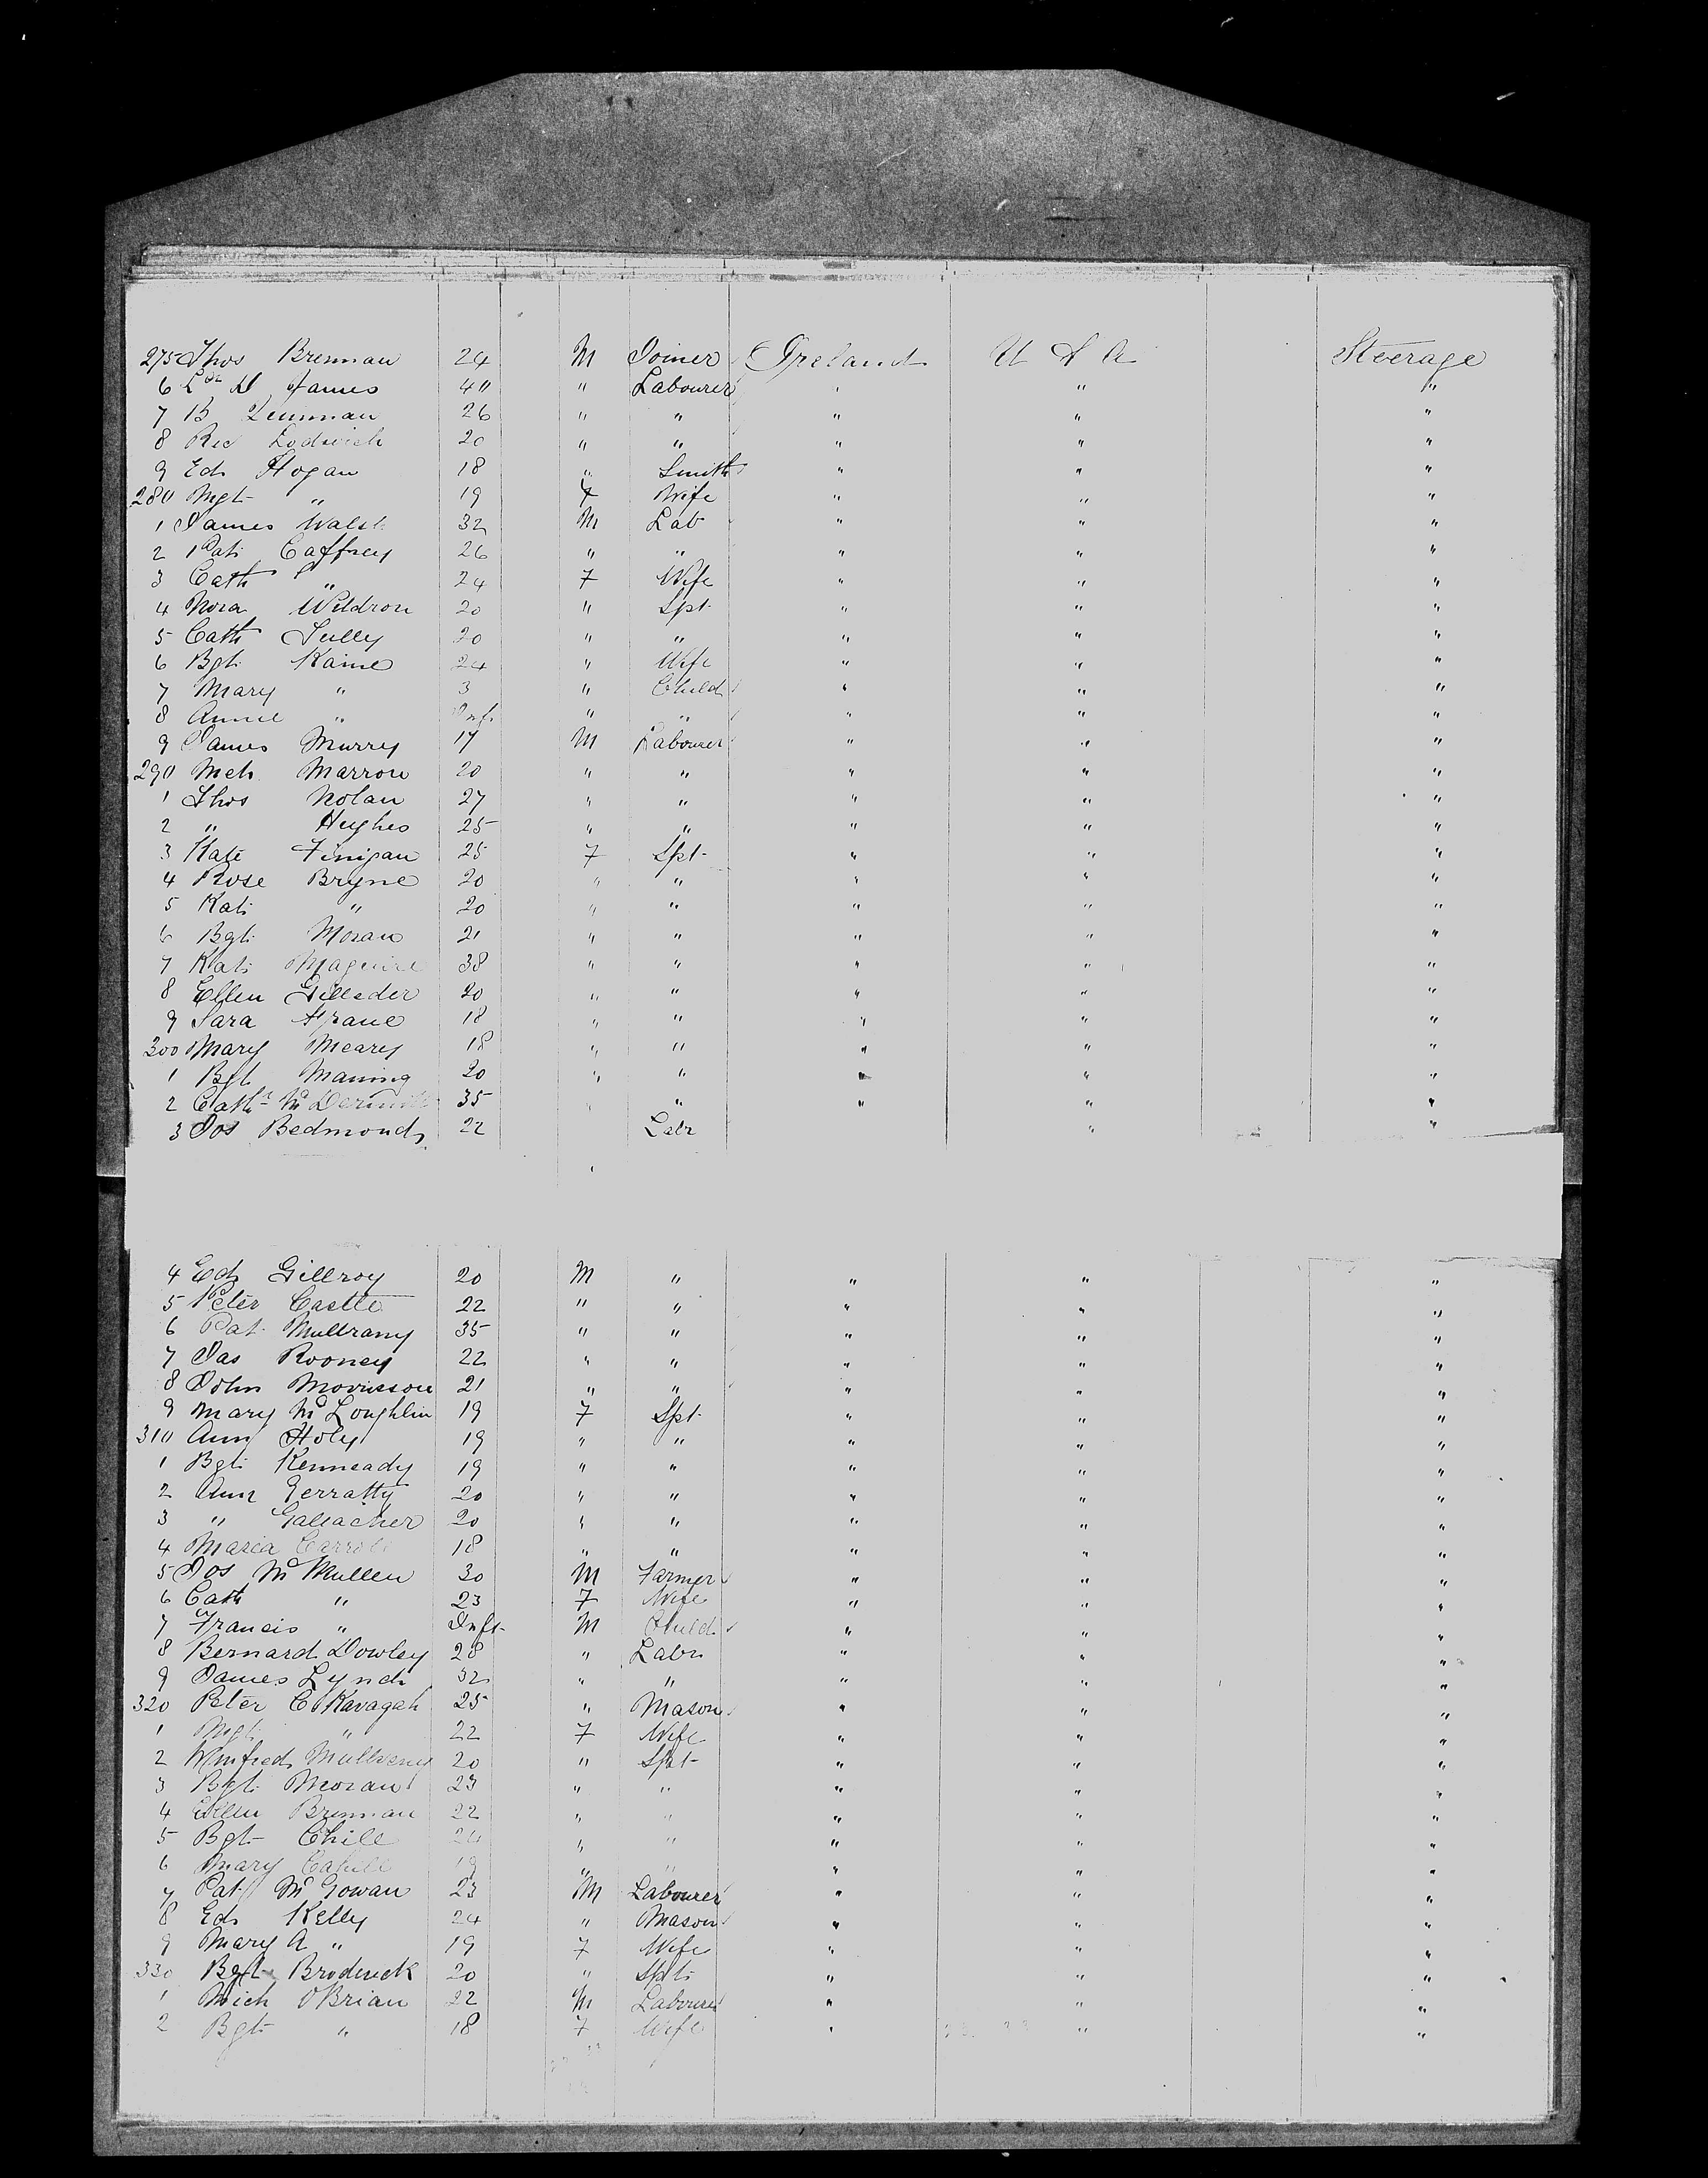 275 Thos Brennan 24 M Joiner Ireland U S A Steerage
6 James 40 " Labourer " " "
7 B 26 " " " " "
8 20 " " " " "
9 Ed Hogan 18 " Smith " " "
280 Mgt " 19 F Wife " " "
1 James Walsh 32 M Lab " " "
2 Pat Caffrey 26 " " " " "
3 Cath " 24 F Wife " " "
4 Nora Wildron 20 " Spt " " "
5 Cath 20 " " " " "
6 Bgt Kaine 24 " Wife " " "
7 Mary " 3 " Child " " "
8 Annie " Inf " " " " "
9 James Murry 17 M Labourer " " "
290 Mch Marron 20 " " " " "
1 Thos Nolan 27 " " " " "
2 " Hughes 25 " " " " "
3 Kate Finigan 25 F Spt " " "
4 Rose Bryne 20 " " " " "
5 Kate " 20 " " " " "
6 Bgt Moran 21 " " " " "
7 Kate Maguire 38 " " " " "
8 Ellen 20 " " " " "
9 Sara 18 " " " " "
300 Mary Meary 18 " " " " "
1 Bgt Maning 20 " " " " "
2 Cath 35 " " " " "
3 Jos Bedmond 22 Labr " "
4 Ed Gillroy 20 M " " " "
5 Peter Castle 22 " " " " "
6 Pat Mullrany 35 " " " " "
7 Jas Rooney 22 " " " " "
8 John Morrisson 21 " " " " "
9 Mary McLoughlin 19 F Spt " " "
310 Ann Holy 19 " " " " "
1 Bgt Kenneady 19 " " " " "
2 Ann Gerratty 20 " " " " "
3 " Gallacher 20 " " " " "
4 Maria Carroll 18 " " " " "
5 Jos McMullen 30 M Farmer " " "
6 Cath " 23 F Wife " " "
7 Francis " Inft M Child " " "
8 Bernard Dowley 28 " Labr " " "
9 James Lynch 32 " " " " "
320 Peter C Kavagah 25 " Mason " " "
1 Mgt " 22 F Wife " " "
2 Winfred Mullreny 20 " Spt " " "
3 Bgt Moran 23 " " " " "
4 Ellen Brennan 22 " " " " "
5 Bgt Chile 24 " " " " "
6 Mary Cahill 19 " " " " "
7 Pat McGowan 23 M Labourer " " "
8 Ed Kelly 24 " Mason " " "
9 Mary A " 19 F Wife " " "
330 Bgt Broderick 20 " Spt " " "
1 Mich OBrian 22 M Labourer " " "
2 Bgt " 18 F Wife " " "